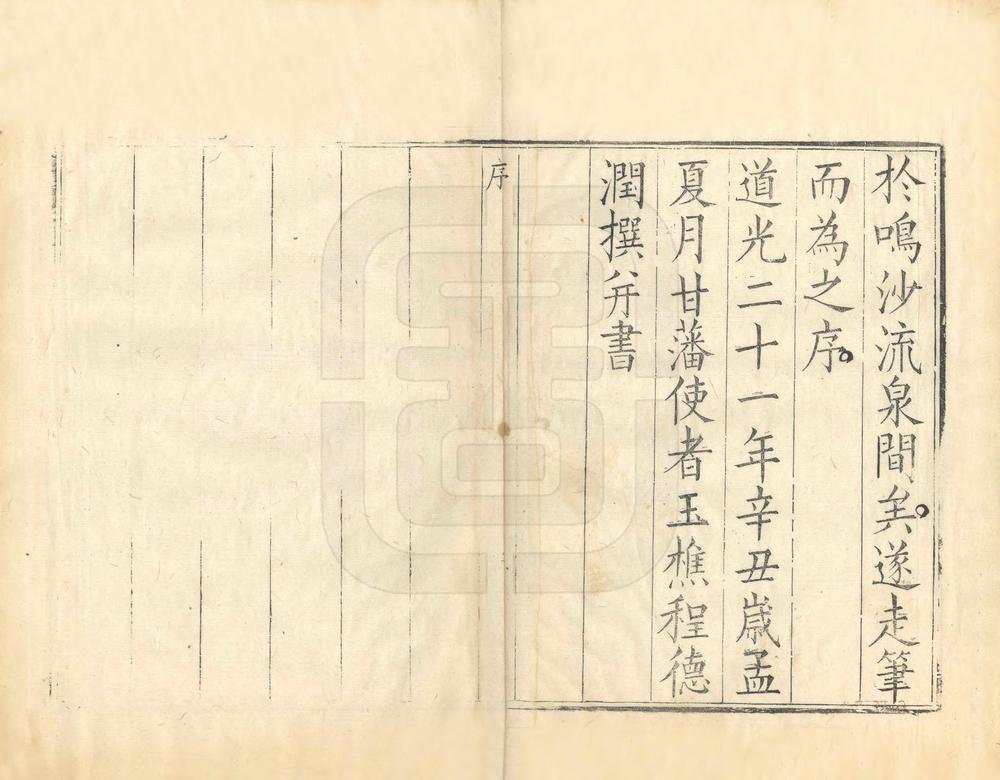 於鳴沙流泉間矣。遂走筆
而為之序。
道光二十一年辛丑歲孟
夏月甘藩使者玉樵程德
潤撰并書
序